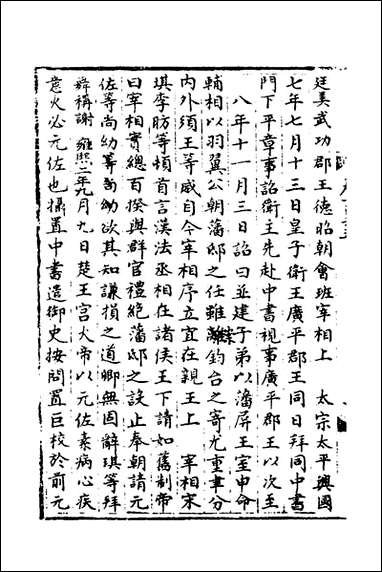 廷美武功郡王德昭朝會班宰相上　太宗太平興國
七年七月十三日皇子衛王廣平郡王同日拜同中書
門下平章事詔衛王先赴中書視事廣平郡王以次至
八年十一月三日詔曰並建子弟以藩屏王室申命
輔相以羽翼公朝藩邸之任雖離鈞台之寄尤重聿分
內外須王等威自今宰相序立宜在親王上　宰相宋
琪李昉等頓首言漢法丞相在諸侯王下請如舊制帝
曰宰相實總百揆與群官禮絕藩邸之設止奉朝請元
佐等尚幼等尚幼欲其知謙損之道卿無固辭琪等拜
舜稱謝　雍熙二年九月九日楚王宮火帝以元佐素病心疾
意火必元佐也攝置中書遣御史按問置巨校於前元